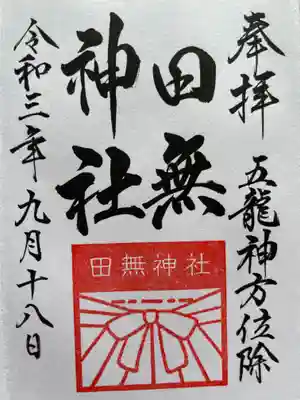 奉拝
五龍神方位除
田無
神社
田無神社
令和三年九月十八日